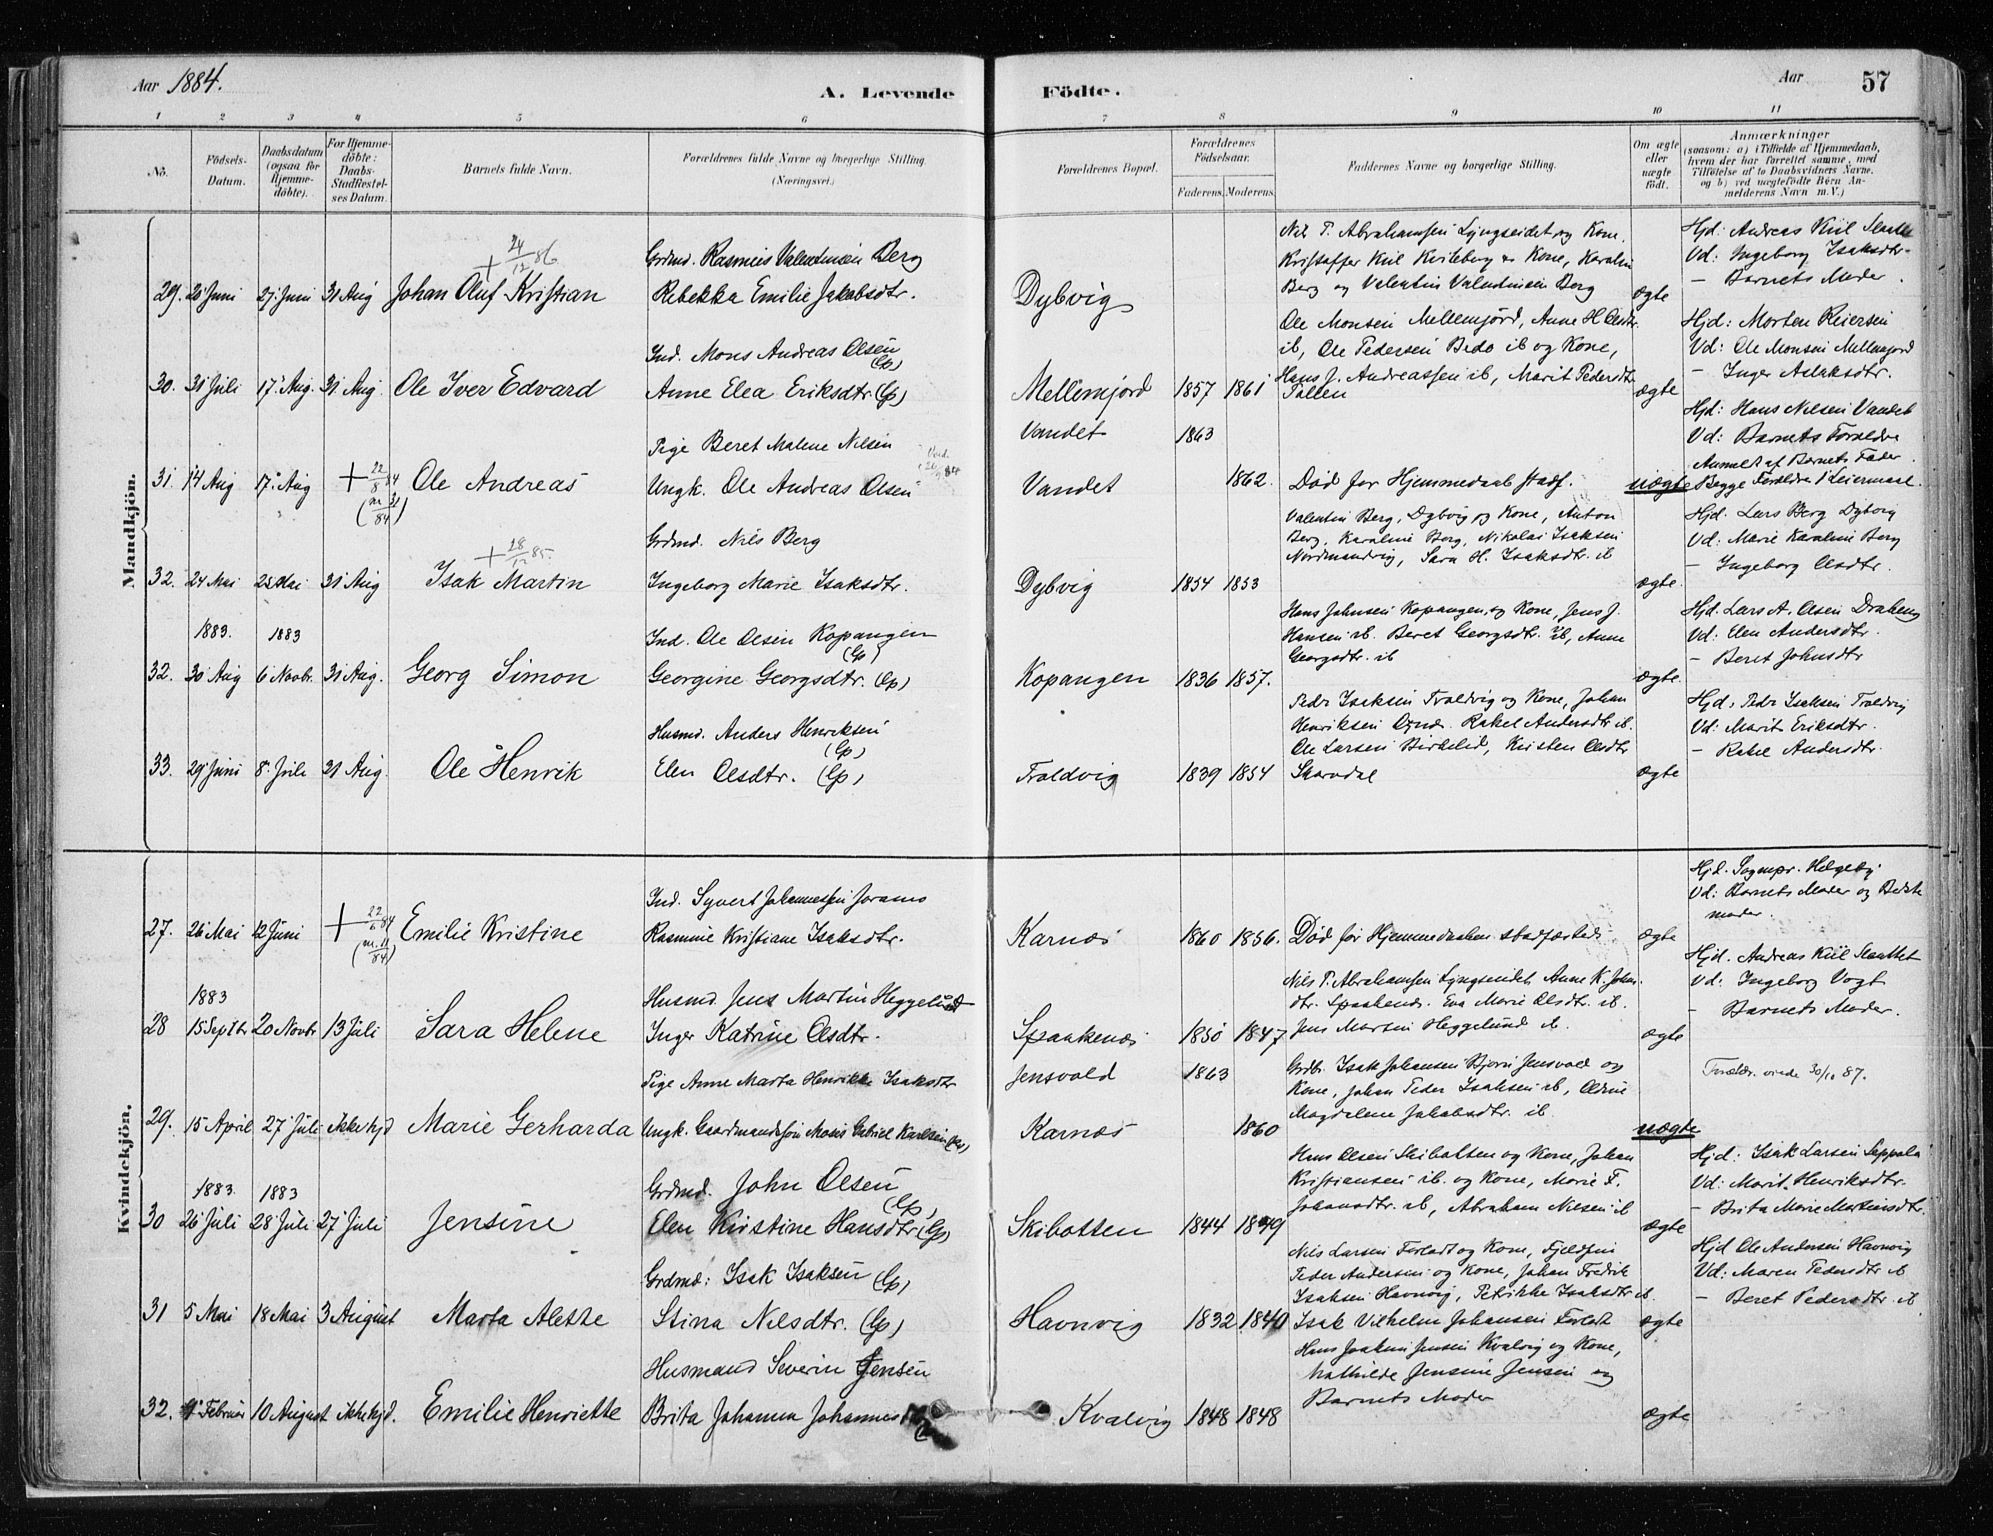 Aar 1884.
A. Levende Födte.
Aar
57
1 2 3 4 5 6 7 8 9 10 11
No.
Födsels-Datum.
Daabsdatum (ogsaa for Hjemme-döbte).
For Hjemme-döbte: Daabs-Stadfæstel-ses Datum.
Barnets fulde Navn.
Forældrenes fulde Navne og borgerlige Stilling.
(Næringsvei.)
Forældrenes Bopæl.
Forældrenes Fødselsaar.
Faderens. Moderens.
Faddernes Navne og borgerlige Stilling.
Om ægte eller uægte født.
Anmærkninger
(saasom: a) i Tilfælde af Hjemmedaab,
hvem der har forrettet samme, med
Tilföielse af to Daabsvidners Navne.
og b) ved uægtefödte Börn An-
melderens Navn m.V.)
Mandkjön.
+ 24/12 86
Grdmd. Rasmus Valentinsen Berg
Nils P. Abrahamsen Lyngseidet og Kone,
Kristoffer Kiil Kvileborg og Kone, Karolin
Berg og Valentin Valentinsen Berg
Hjd: Andreas Kiil
Vd: Ingeborg Isaksdtr.
- Barnets Moder.
29. 20 Juni 27. Juni 31 Aug Johan Oluf Kristian Rebekka Emilie Jakobsdtr. Dybvig ægte
Ind. Mons Andreas Olsen (Lp)
Ole Monsen Mellemjord, Anne H Olsdtr.
ib, Ole Pedersen Bedo ib og Kone,
Hans J. Andreassen ib, Marit Pedersdtr
Pollen
Hjd: Morten Reiersen
Vd: Ole Monsen Mellemjord
- Inger Aslaksdtr.
30. 31 Juli 17. Aug. 31 Aug. Ole Iver Edvard Anne Elea Eriksdtr. (Lp) Mellemjord 1857 1861 ægte
Pige Beret Malene Nilsen Vandet 1863
Hjd: Hans Nilsen Vandet
Vd: Barnets Forældre
Anmeldt af Barnets Fader.
31. 14 Aug 17. Aug + 22/8 84 (nr 31/84) Ole Andreas Ungk. Ole Andreas Olsen Vandet 1862. Død før Hjemmedaab stadf. uægte Begge Forældre 1 Leiermaal.
Grdmd. Nils Berg
Valentin Berg, Dybvig og Kone, Anton
Berg, Karoline Berg, Nikolai Isaksen
Nordmandvig, Sara H. Isaksdtr. ib
Hjd. Lars Berg Dybvig
Vd: Marie Karoline Berg
- Ingeborg Olsdtr.
+ 28/12 85.
32. 24 Mai 25 Mai 31 Aug Isak Martin Ingeborg Marie Isaksdtr. Dybvig 1854 1853 ægte.
1883. 1883
Ind. Ole Olsen Kopangen (Lp)
Hans Johnsen Kopangen, og Kone, Jens J.
Hansen ib. Beret Georgsdtr. ib, Anne
Georgsdtr. ib
Hjd. Lars A. Olsen
Vd: Elen Andersdtr.
- Beret Johnsdtr
32. 30 Aug 6 Novbr. 31 Aug. Georg Simon Georgine Georgsdtr. (Lp) Kopangen 1836 1857. ægte.
Husmd. Anders Henriksen (Lp)
Peder Isaksen Troldvig og Kone, Johan
Henriksen Rakel Andersdtr. ib.
Ole Larsen Birkelid, Kirsten Olsdtr
Skardal
Hjd: Peder Isaksen Troldvig
Vd: Marit Eriksdtr.
- Rakel Andersdtr.
33. 29 Juni 8. Juli 31 Aug. Ole Henrik Elen Olsdtr. (Lp) Troldvig 1839 1854 ægte
Kvindekjön.
Ind. Syvert Johannessen Joramo
Hjd. Sognepr. Helgeby
Vd: Barnets Moder og Bedste
moder.
27. 26 Mai 12 Juni + 22/6 84 (nr. 11/84) Emilie Kristine Rasmine Kristiane Isaksdtr. Karnæs 1860 1856. Død før Hjemmedaaben stadfæstedes ægte
1883
Husmd. Jens Martin Heggelund
Nils P. Abrahamsen Lyngseidet Anne K. Johan.
dtr. Spaakenæs. Eva Marie Olsdtr. ib.
Jens Martin Heggelund ib.
Hjd. Andreas Kiil Slattet
Vd: Ingeborg Vogt
- Barnets Moder.
28 15 Septbr 20 Novbr. 13 Juli Sara Helene Inger Katrine Olsdtr. Spaakenæs 1850 1847 ægte
Pige Anne Marta Henrikke Isaksdtr Jensvold 1863
Grdbr. Isak Johansen Bjørn Jensvold og
Kone, Johan Peder Isaksen ib,
Magdalene Jakobsdtr. ib
Forældr. viede 30/10 87.
29. 15 April 27 Juli ikke hjd Marie Gerharda Ungk. Gaardmandssøn Mons Gabriel Karlsen (Lp) Karnæs 1860 uægte
1883. 1883
Grdmd. John Olsen (Lp)
Hans Olsen Skibotten og Kone, Johan
Kristiansen ib. og Kone, Marie F.
Johansdtr. ib, Abraham Nilsen ib
Hjd: Isak Larsen Seppola
Vd: Marit Henriksdtr.
- Brita Marie Mortensdtr.
30 26 Juli 28 Juli 27 Juli Jensine Elen Kirstine Hansdtr (Lp) Skibotten 1844 1849 ægte
Grdmd: Isak Isaksen (Lp)
Nils Larsen Forladt og Kone, Fjeldfin
Peder Andersen og Kone, Johan Fredrik
Isaksen Havnvig, Petrikke Isaksdtr ib.
Isak Vilhelm Johansen Forladt
Hjd Ole Andersen Havnvig
Vd: Maren Pedersdtr ib
- Beret Pedersdtr ib.
31 5 Mai 18 Mai 3 August Marta Alette Stina Nilsdtr. (Lp) Havnvig 1832 1840 ægte
Husmand Severin Jensen
Hans Joakim Jensen Kvalvig og Kone,
Mathilde Jensine Jensen og
Barnets Moder
32. 9 Februar 10 August ikke hjd. Emilie Henriette Brita Johanna Johannes Kvalvig 1848 1848 ægte